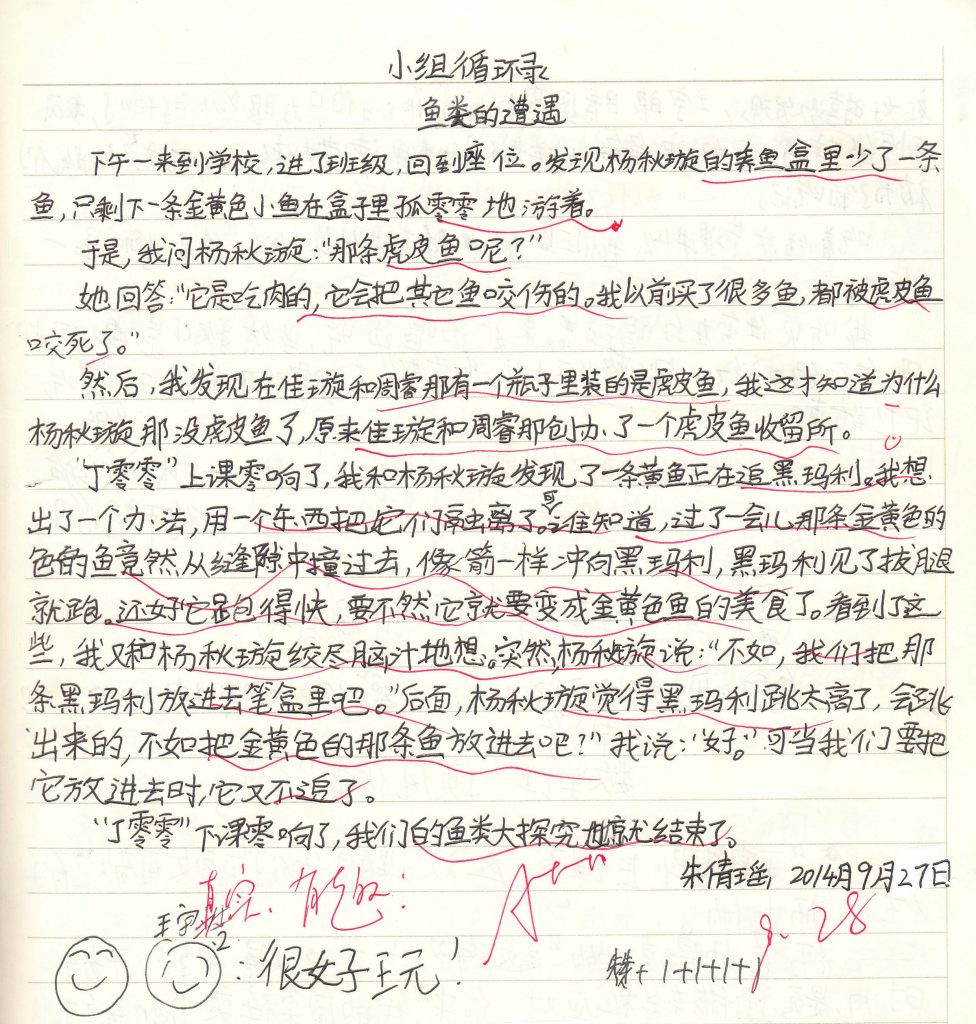 小组循环录
鱼类的遭遇
下午一来到学校,进了班级,回到座位。发现杨秋璇的养鱼盒里少了一条
鱼,只剩下一条金黄色小鱼在盒子里孤零零地游着。
于是,我问杨秋璇:“那条虎皮鱼呢?”
她回答:“它是吃肉的,它会把其它鱼咬伤的。我以前买了很多鱼,都被虎皮鱼
咬死了。”
然后,我发现在佳璇和周睿那有一个瓶子里装的是虎皮鱼,我这才知道为什么
杨秋璇那没虎皮鱼了,原来佳璇和周睿那创办了一个虎皮鱼收留所。
“丁零零”上课零响了,我和杨秋璇发现了一条黄鱼正在追黑玛利。我想
出了一个办法,用一个东西把它们隔离了。可谁知道,过了一会儿那条金黄色的
色的鱼竟然从缝隙中撞过去,像箭一样冲向黑玛利,黑玛利见了拔腿
就跑。还好它跑得快,要不然它就要变成金黄色鱼的美食了。看到了这
些,我又和杨秋璇绞尽脑汁地想。突然,杨秋璇说:“不如,我们把那
条黑玛利放进去笔盒里吧。”后面,杨秋璇觉得黑玛利跳太高了,会跳
出来的,不如把金黄色的那条鱼放进去吧?”我说:“好。”可当我们要把
它放进去时,它又不追了。
“丁零零”下课零响了,我们的鱼类大探究也就结束了。
朱倩瑶 2014年9月27日
真实、有趣!
A+++
9.28
王宇
:很好王元!
+1+1+1+1